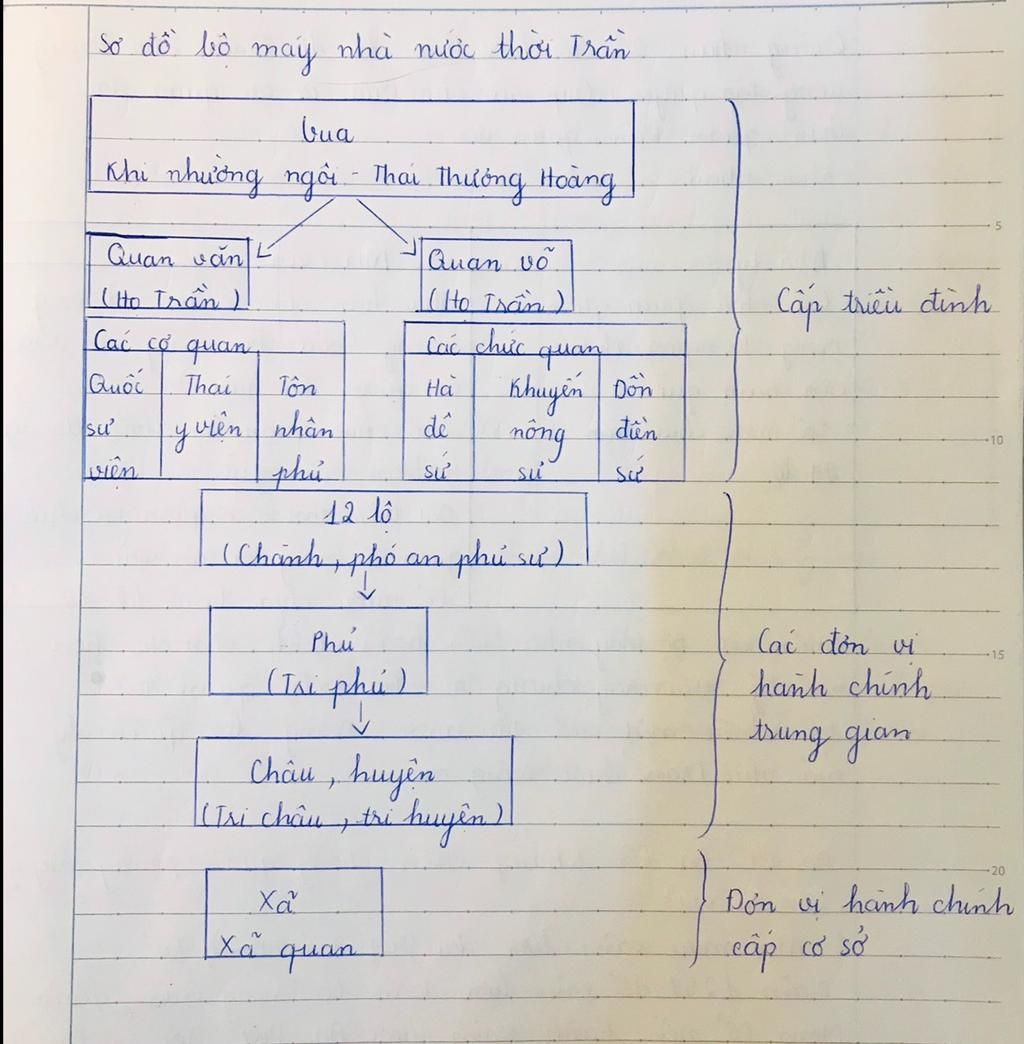 Sơ đồ bộ máy nhà nước thời Trần
Vua
Khi nhường ngôi - Thái Thượng Hoàng
Quan văn
(Họ Trần)
Quan võ
(Họ Trần)
Cấp triều đình
Các cơ quan
Quốc sử viện
Thái y viện
Tôn nhân phủ
Các chức quan
Hà đê sứ
Khuyến nông sứ
Đồn điền sứ
12 lộ
(Chánh, phó an phủ sứ)
Phủ
(Tri phủ)
Châu, huyện
(Tri châu, tri huyện)
Các đơn vị
hành chính
trung gian
Xã
Xã quan
Đơn vị hành chính
cấp cơ sở
5
10
15
20